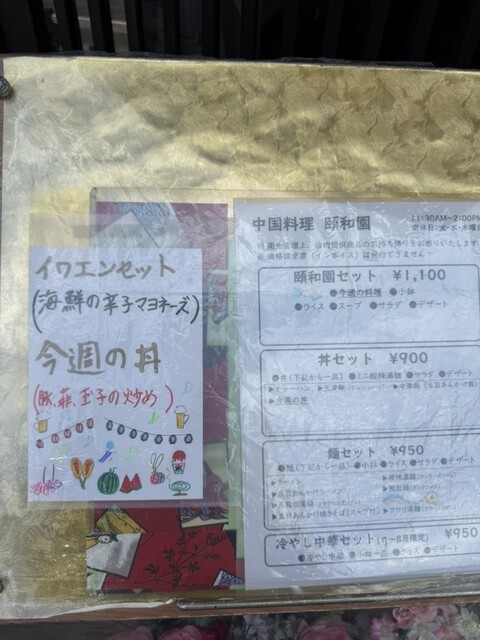 イワエンセット
(海鮮の辛子マヨネーズ)
今週の丼
(豚、菲、玉子の炒め)
中国料理 頤和園
11:30AM~2:00PM
定休日:火・水・木曜日
頤和園セット ¥1,100
●今週の料理 ●小鉢
●ライス ●スープ ●サラダ ●デザート
丼セット ¥900
●丼(下記から一品) ●ミニ酸辣湯麺 ●サラダ ●デザート
▶チャーハン
▶今週の丼
麺セット ¥950
●麺(下記から一品) ●小鉢 ●ライス ●サラダ ●デザート
▶ラーメン
冷やし中華セット(7~8月限定) ¥950
●冷やし中華 ●小鉢一品 ●ライス ●デザート